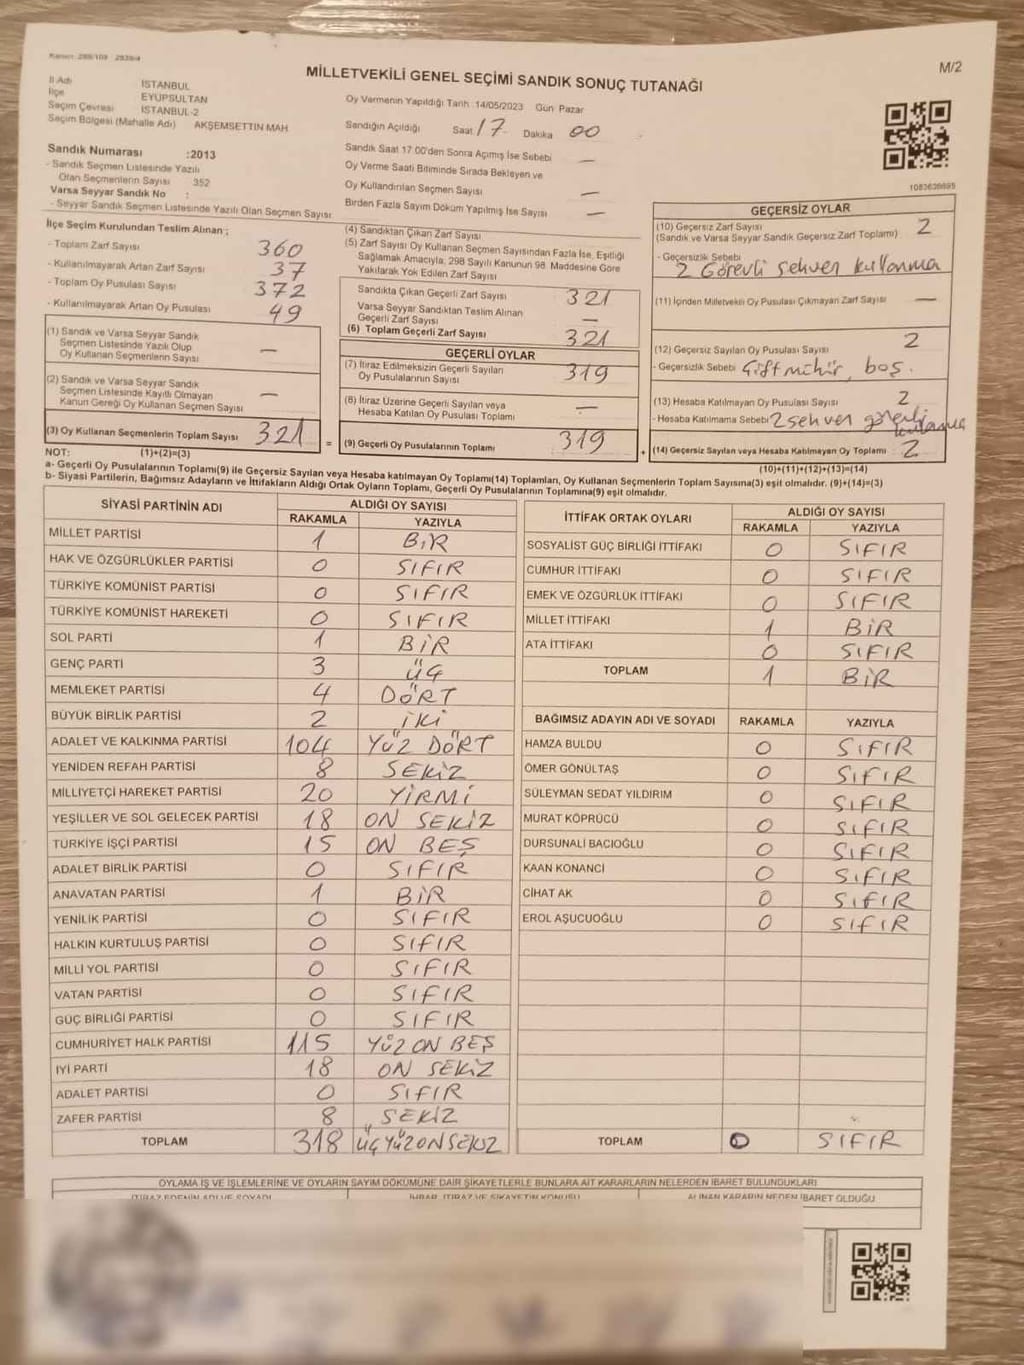 MİLLETVEKİLİ GENEL SEÇİMİ SANDIK SONUÇ TUTANAĞI
M/2
İl Adı İSTANBUL
İlçe EYÜPSULTAN
Seçim Çevresi İSTANBUL-2
Seçim Bölgesi (Mahalle Adı) AKŞEMSETTİN MAH
Sandık Numarası :2013
- Sandık Seçmen Listesinde Yazılı
Olan Seçmenlerin Sayısı 352
Varsa Seyyar Sandık No :
- Seyyar Sandık Seçmen Listesinde Yazılı Olan Seçmen Sayısı:
Oy Vermenin Yapıldığı Tarih :14/05/2023 Gün Pazar
Sandığın Açıldığı Saat 17 Dakika 00
Sandık Saat 17.00'den Sonra Açımış İse Sebebi —
Oy Verme Saati Bitiminde Sırada Bekleyen ve
Oy Kullandırılan Seçmen Sayısı —
Birden Fazla Sayım Döküm Yapılmış İse Sayısı —
1083636695
İlçe Seçim Kurulundan Teslim Alınan ;
- Toplam Zarf Sayısı 360
- Kullanılmayarak Artan Zarf Sayısı 37
- Toplam Oy Pusulası Sayısı 372
- Kullanılmayarak Artan Oy Pusulası 49
(1) Sandık ve Varsa Seyyar Sandık
Seçmen Listesinde Yazılı Olup
Oy Kullanan Seçmenlerin Sayısı —
(2) Sandık ve Varsa Seyyar Sandık
Seçmen Listesinde Kayıtlı Olmayan
Kanun Gereği Oy Kullanan Seçmen Sayısı —
(3) Oy Kullanan Seçmenlerin Toplam Sayısı 321 =
(4) Sandıktan Çıkan Zarf Sayısı
(5) Zarf Sayısı Oy Kullanan Seçmen Sayısından Fazla İse, Eşitliği
Sağlamak Amacıyla, 298 Sayılı Kanunun 98. Maddesine Göre
Yakılarak Yok Edilen Zarf Sayısı
Sandıkta Çıkan Geçerli Zarf Sayısı 321
Varsa Seyyar Sandıktan Teslim Alınan
Geçerli Zarf Sayısı —
(6) Toplam Geçerli Zarf Sayısı 321
GEÇERLİ OYLAR
(7) İtiraz Edilmeksizin Geçerli Sayılan
Oy Pusulalarının Sayısı 319
(8) İtiraz Üzerine Geçerli Sayılan veya
Hesaba Katılan Oy Pusulası Toplamı —
(9) Geçerli Oy Pusulalarının Toplamı 319 +
GEÇERSİZ OYLAR
(10) Geçersiz Zarf Sayısı 2
(Sandık ve Varsa Seyyar Sandık Geçersiz Zarf Toplamı)
- Geçersizlik Sebebi
2 Görevli sehven kullanma
(11) İçinden Milletvekili Oy Pusulası Çıkmayan Zarf Sayısı —
(12) Geçersiz Sayılan Oy Pusulası Sayısı 2
- Geçersizlik Sebebi Çift mühür, boş.
(13) Hesaba Katılmayan Oy Pusulası Sayısı 2
- Hesaba Katılmama Sebebi 2 sehven görevli
(14) Geçersiz Sayılan veya Hesaba Katılmayan Oy Toplamı 2
NOT: (1)+(2)=(3) (10)+(11)+(12)+(13)=(14)
a- Geçerli Oy Pusulalarının Toplamı(9) ile Geçersiz Sayılan veya Hesaba katılmayan Oy Toplamı(14) Toplamları, Oy Kullanan Seçmenlerin Toplam Sayısına(3) eşit olmalıdır. (9)+(14)=(3)
b- Siyasi Partilerin, Bağımsız Adayların ve İttifakların Aldığı Ortak Oyların Toplamı, Geçerli Oy Pusulalarının Toplamına(9) eşit olmalıdır.
SİYASİ PARTİNİN ADI ALDIĞI OY SAYISI
RAKAMLA YAZIYLA
MİLLET PARTİSİ 1 BİR
HAK VE ÖZGÜRLÜKLER PARTİSİ 0 SIFIR
TÜRKİYE KOMÜNİST PARTİSİ 0 SIFIR
TÜRKİYE KOMÜNİST HAREKETİ 0 SIFIR
SOL PARTİ 1 BİR
GENÇ PARTİ 3 ÜÇ
MEMLEKET PARTİSİ 4 DÖRT
BÜYÜK BİRLİK PARTİSİ 2 İKİ
ADALET VE KALKINMA PARTİSİ 104 YÜZ DÖRT
YENİDEN REFAH PARTİSİ 8 SEKİZ
MİLLİYETÇİ HAREKET PARTİSİ 20 YİRMİ
YEŞİLLER VE SOL GELECEK PARTİSİ 18 ON SEKİZ
TÜRKİYE İŞÇİ PARTİSİ 15 ON BEŞ
ADALET BİRLİK PARTİSİ 0 SIFIR
ANAVATAN PARTİSİ 1 BİR
YENİLİK PARTİSİ 0 SIFIR
HALKIN KURTULUŞ PARTİSİ 0 SIFIR
MİLLİ YOL PARTİSİ 0 SIFIR
VATAN PARTİSİ 0 SIFIR
GÜÇ BİRLİĞİ PARTİSİ 0 SIFIR
CUMHURİYET HALK PARTİSİ 115 YÜZ ON BEŞ
İYİ PARTİ 18 ON SEKİZ
ADALET PARTİSİ 0 SIFIR
ZAFER PARTİSİ 8 SEKİZ
TOPLAM 318 ÜÇ YÜZ ON SEKİZ
İTTİFAK ORTAK OYLARI ALDIĞI OY SAYISI
RAKAMLA YAZIYLA
SOSYALİST GÜÇ BİRLİĞİ İTTİFAKI 0 SIFIR
CUMHUR İTTİFAKI 0 SIFIR
EMEK VE ÖZGÜRLÜK İTTİFAKI 0 SIFIR
MİLLET İTTİFAKI 1 BİR
ATA İTTİFAKI 0 SIFIR
TOPLAM 1 BİR
BAĞIMSIZ ADAYIN ADI VE SOYADI RAKAMLA YAZIYLA
HAMZA BULDU 0 SIFIR
ÖMER GÖNÜLTAŞ 0 SIFIR
SÜLEYMAN SEDAT YILDIRIM 0 SIFIR
MURAT KÖPRÜCÜ 0 SIFIR
DURSUNALİ BACIOĞLU 0 SIFIR
KAAN KONANCİ 0 SIFIR
CİHAT AK 0 SIFIR
EROL AŞUCUOĞLU 0 SIFIR
TOPLAM 0 SIFIR
OYLAMA İŞ VE İŞLEMLERİNE VE OYLARIN SAYIM DÖKÜMÜNE DAİR ŞİKAYETLERLE BUNLARA AİT KARARLARIN NELERDEN İBARET BULUNDUKLARI
İTİRAZ EDENİN ADI VE SOYADI İHBAR, İTİRAZ VE ŞİKAYETİN KONUSU ALINAN KARARIN NEDEN İBARET OLDUĞU